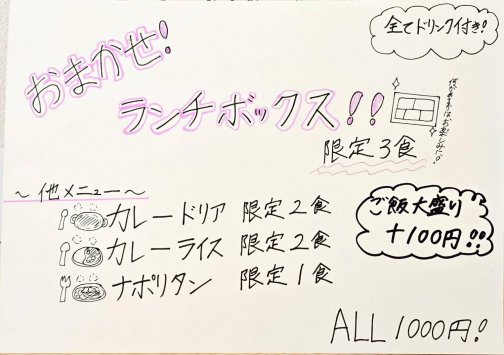 全てドリンク付き!
おまかせ!
ランチボックス!!
何が入るかはお楽しみに♡!
限定3食
~他メニュー~
カレードリア 限定2食
カレーライス 限定2食
ナポリタン 限定1食
ご飯大盛り
+100円!!
ALL 1000円!